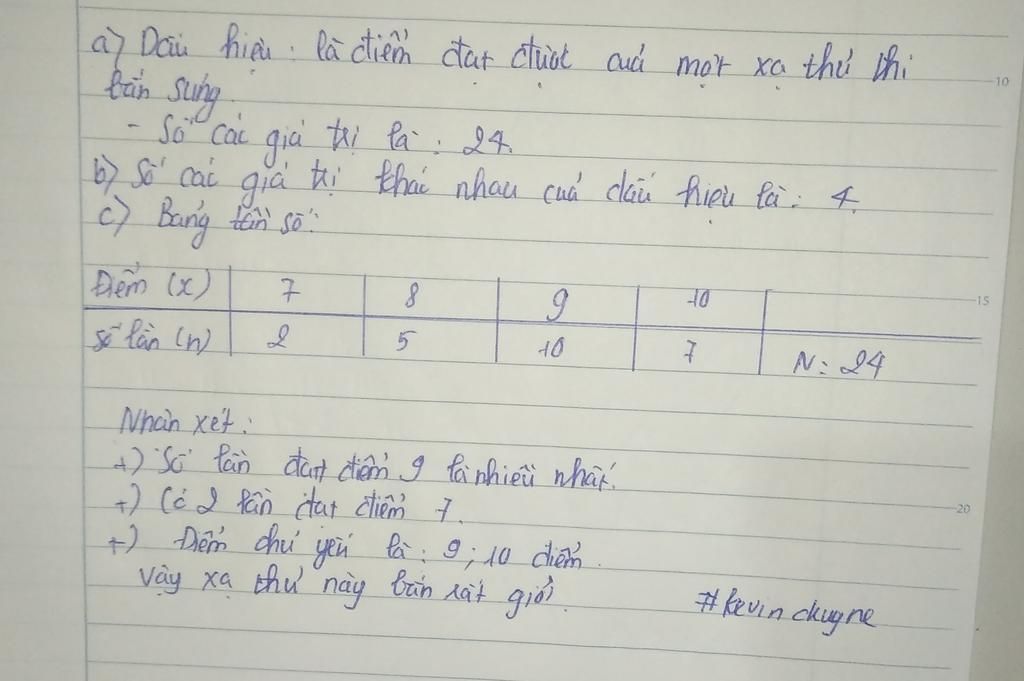 a) Dấu hiệu: là điểm đạt được của một xạ thủ thi
bắn súng.
- Số các giá trị là: 24.
b) Số các giá trị khác nhau của dấu hiệu là: 4.
c) Bảng tần số:
Điểm (x) 7 8 9 10
Số lần (n) 2 5 10 7 N: 24
Nhận xét:
+) Số lần đạt điểm 9 là nhiều nhất.
+) Có 2 lần đạt điểm 7.
+) Điểm chủ yếu là: 9; 10 điểm.
Vậy xạ thủ này bắn rất giỏi.
#kevin chugne
10
15
20